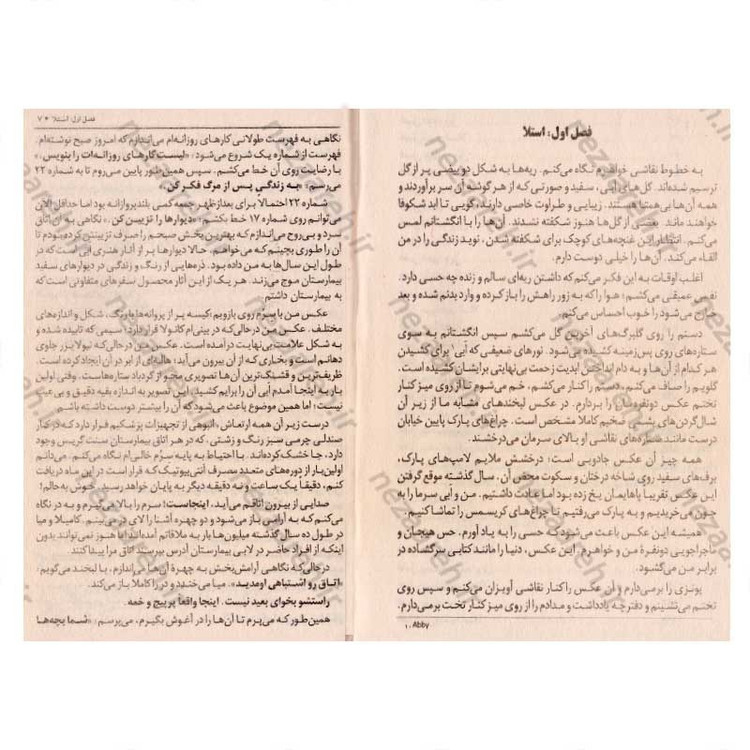 فصل اول: استلا
به خطوط نقاشی خواهرم نگاه می‌کنم. ریه‌ها به شکل دو بیضی پر از گل
ترسیم شده‌اند. گل‌های آبی، سفید و صورتی که از هر گوشه آن سر برآوردند و
همه آن‌ها بی‌همتا هستند. زیبایی و طراوت خاصی دارند، گویی تا ابد شکوفا
خواهند ماند. بعضی از گل‌ها هنوز شکفته نشدند. آن‌ها را با انگشتانم لمس
می‌کنم. انتظار این غنچه‌های کوچک برای شکفته شدن، نوید زندگی را در من
القاء می‌کند. آن‌ها را خیلی دوست دارم.
اغلب اوقات به این فکر می‌کنم که داشتن ریه‌ای سالم و زنده چه حسی دارد.
نفس عمیقی می‌کشم؛ هوا را که به زور راهش را باز کرده و وارد بدنم شده و بعد
خارج می‌شود را خوب احساس می‌کنم.
دستم را روی گلبرگ‌های آخرین گل می‌کشم سپس انگشتانم به سوی
ستاره‌های روی پس‌زمینه کشیده می‌شود. نورهای ضعیفی که اَبی¹ برای کشیدن
هر کدام از آن‌ها و به دام انداختن ابدیت زحمت بی‌نهایتی برایشان کشیده است.
گلویم را صاف می‌کنم، دستم را کنار می‌کشم، خم می‌شوم تا از روی میز کنار
تختم عکس دونفره‌مان را بردارم. در عکس لبخندهای مشابه ما از زیر آن
شال‌گردن‌های پشمی ضخیم کاملا مشخص است. چراغ‌های پارک پایین خیابان
درست مانند ستاره‌های نقاشی او بالای سرمان می‌درخشند.
همه چیز آن عکس جادویی است؛ درخشش ملایم لامپ‌های پارک،
برف‌های سفید روی شاخه درختان و سکوت محض آن. سال گذشته موقع گرفتن
این عکس تقریبا پاهایمان یخ زده بود اما عادت داشتیم. من و اَبی سرما را به
جون می‌خریدیم و به پارک می‌رفتیم تا چراغ‌های کریسمس را تماشا کنیم.
همیشه این عکس باعث می‌شود که حسی را به یاد آورم. حس هیجان و
ماجراجویی دونفرهٔ من و خواهرم. این عکس، دنیا را مانند کتابی سرگشاده در
برابر من می‌گشود.
پونزی را برمی‌دارم و آن عکس را کنار نقاشی آویزان می‌کنم و سپس روی
تختم می‌نشینم و دفترچه یادداشت و مدادم را از روی میز کنار تخت برمی‌دارم.
۱. Abby
فصل اول: استلا * ۷
نگاهی به فهرست طولانی کارهای روزانه‌ام می‌اندازم که امروز صبح نوشته‌ام.
فهرست از شماره یک شروع می‌شود: «لیست کارهای روزانه‌ات را بنویس.»
با رضایت روی آن خط می‌کشم. سپس همین‌طور پایین می‌روم تا به شماره ۲۲
می‌رسم: «به زندگی پس از مرگ فکر کن.
شماره ۲۲ احتمالا برای بعدازظهر جمعه کمی بلندپروازانه بود اما حداقل الان
می‌توانم روی شماره ۱۷ خط بکشم؛ «دیوارها را تزیین کن.» نگاهی به آن اتاق
سرد و بی‌روح می‌اندازم که بهترین بخش صبحم را صرف تزیینش کرده بودم تا
آن را طوری بچینم که می‌خواهم. حالا دیوارها پر از آثار هنری اَبی است که در
طول این سال‌ها به من داده بود. ذره‌هایی از رنگ و زندگی در دیوارهای سفید
بیمارستان موج می‌زند. هر یک از این آثار محصول سفرهای متفاوتی است که
به بیمارستان داشتم.
عکس من با سِرُم روی بازویم؛ کیسه پر از پروانه‌ها با رنگ، شکل و اندازه‌های
مختلف. عکس من درحالی‌که در بینی‌ام کانولا قرار دارد؛ سیمی که تابیده شده و
به شکل علامت بی‌نهایت درآمده است. عکس من درحالی‌که نبولایزر جلوی
دهانم است و بخاری که از آن بیرون می‌آید، هاله‌ای از ابر در آن ایجاد کرده است.
ظریف‌ترین و قشنگ‌ترین آن‌ها تصویری محو از گردباد ستاره‌هاست. وقتی اولین
بار به اینجا آمدم اَبی آن را برایم کشید. این تصویر به اندازه بقیه دقیق و بی‌عیب
نیست؛ اما همین موضوع باعث می‌شود که آن را بیشتر دوست داشته باشم.
درست زیر آن همه ارتعاش، انبوهی از تجهیزات پزشکیم قرار دارد که در کنار
صندلی چرمی سبز رنگ و زشتی، که در هر اتاق بیمارستان سینت گریس وجود
دارد، جا خشک کرده‌اند. با احتیاط به پایه سِرُم خالی‌ام نگاه می‌کنم. می‌دانم
اولین بار از دوره‌های متعدد مصرف آنتی‌بیوتیک که قرار است در این ماه دریافت
کنم، دقیقا یک ساعت و نه دقیقه دیگر به پایان خواهد رسید. خوش به‌حالم!
صدایی از بیرون اتاقم می‌آید. اینجاست؛ سرم را بالا می‌گیرم و به در نگاه
می‌کنم که به آرامی باز می‌شود و دو چهره آشنا را لای در می‌بینم. کامیلا و میا
در طول ده سال گذشته میلیون‌ها بار به ملاقاتم آمده‌اند اما هنوز نمی‌توانند بدون
اینکه از افراد حاضر در لابی بیمارستان آدرس بپرسند اتاق مرا پیدا کنند.
درحالی‌که نگاهی آرامش‌بخش به چهرهٔ آن‌ها می‌اندازم، با لبخند می‌گویم:
«اتاق رو اشتباهی اومدید». میا می‌خندد و در را کاملا باز می‌کند.
راستشو بخوای بعید نیست. اینجا واقعا پرپیچ و خمه.
همین‌طور که می‌پرم تا آن‌ها را در آغوش بگیرم، می‌پرسم: «شما بچه‌ها